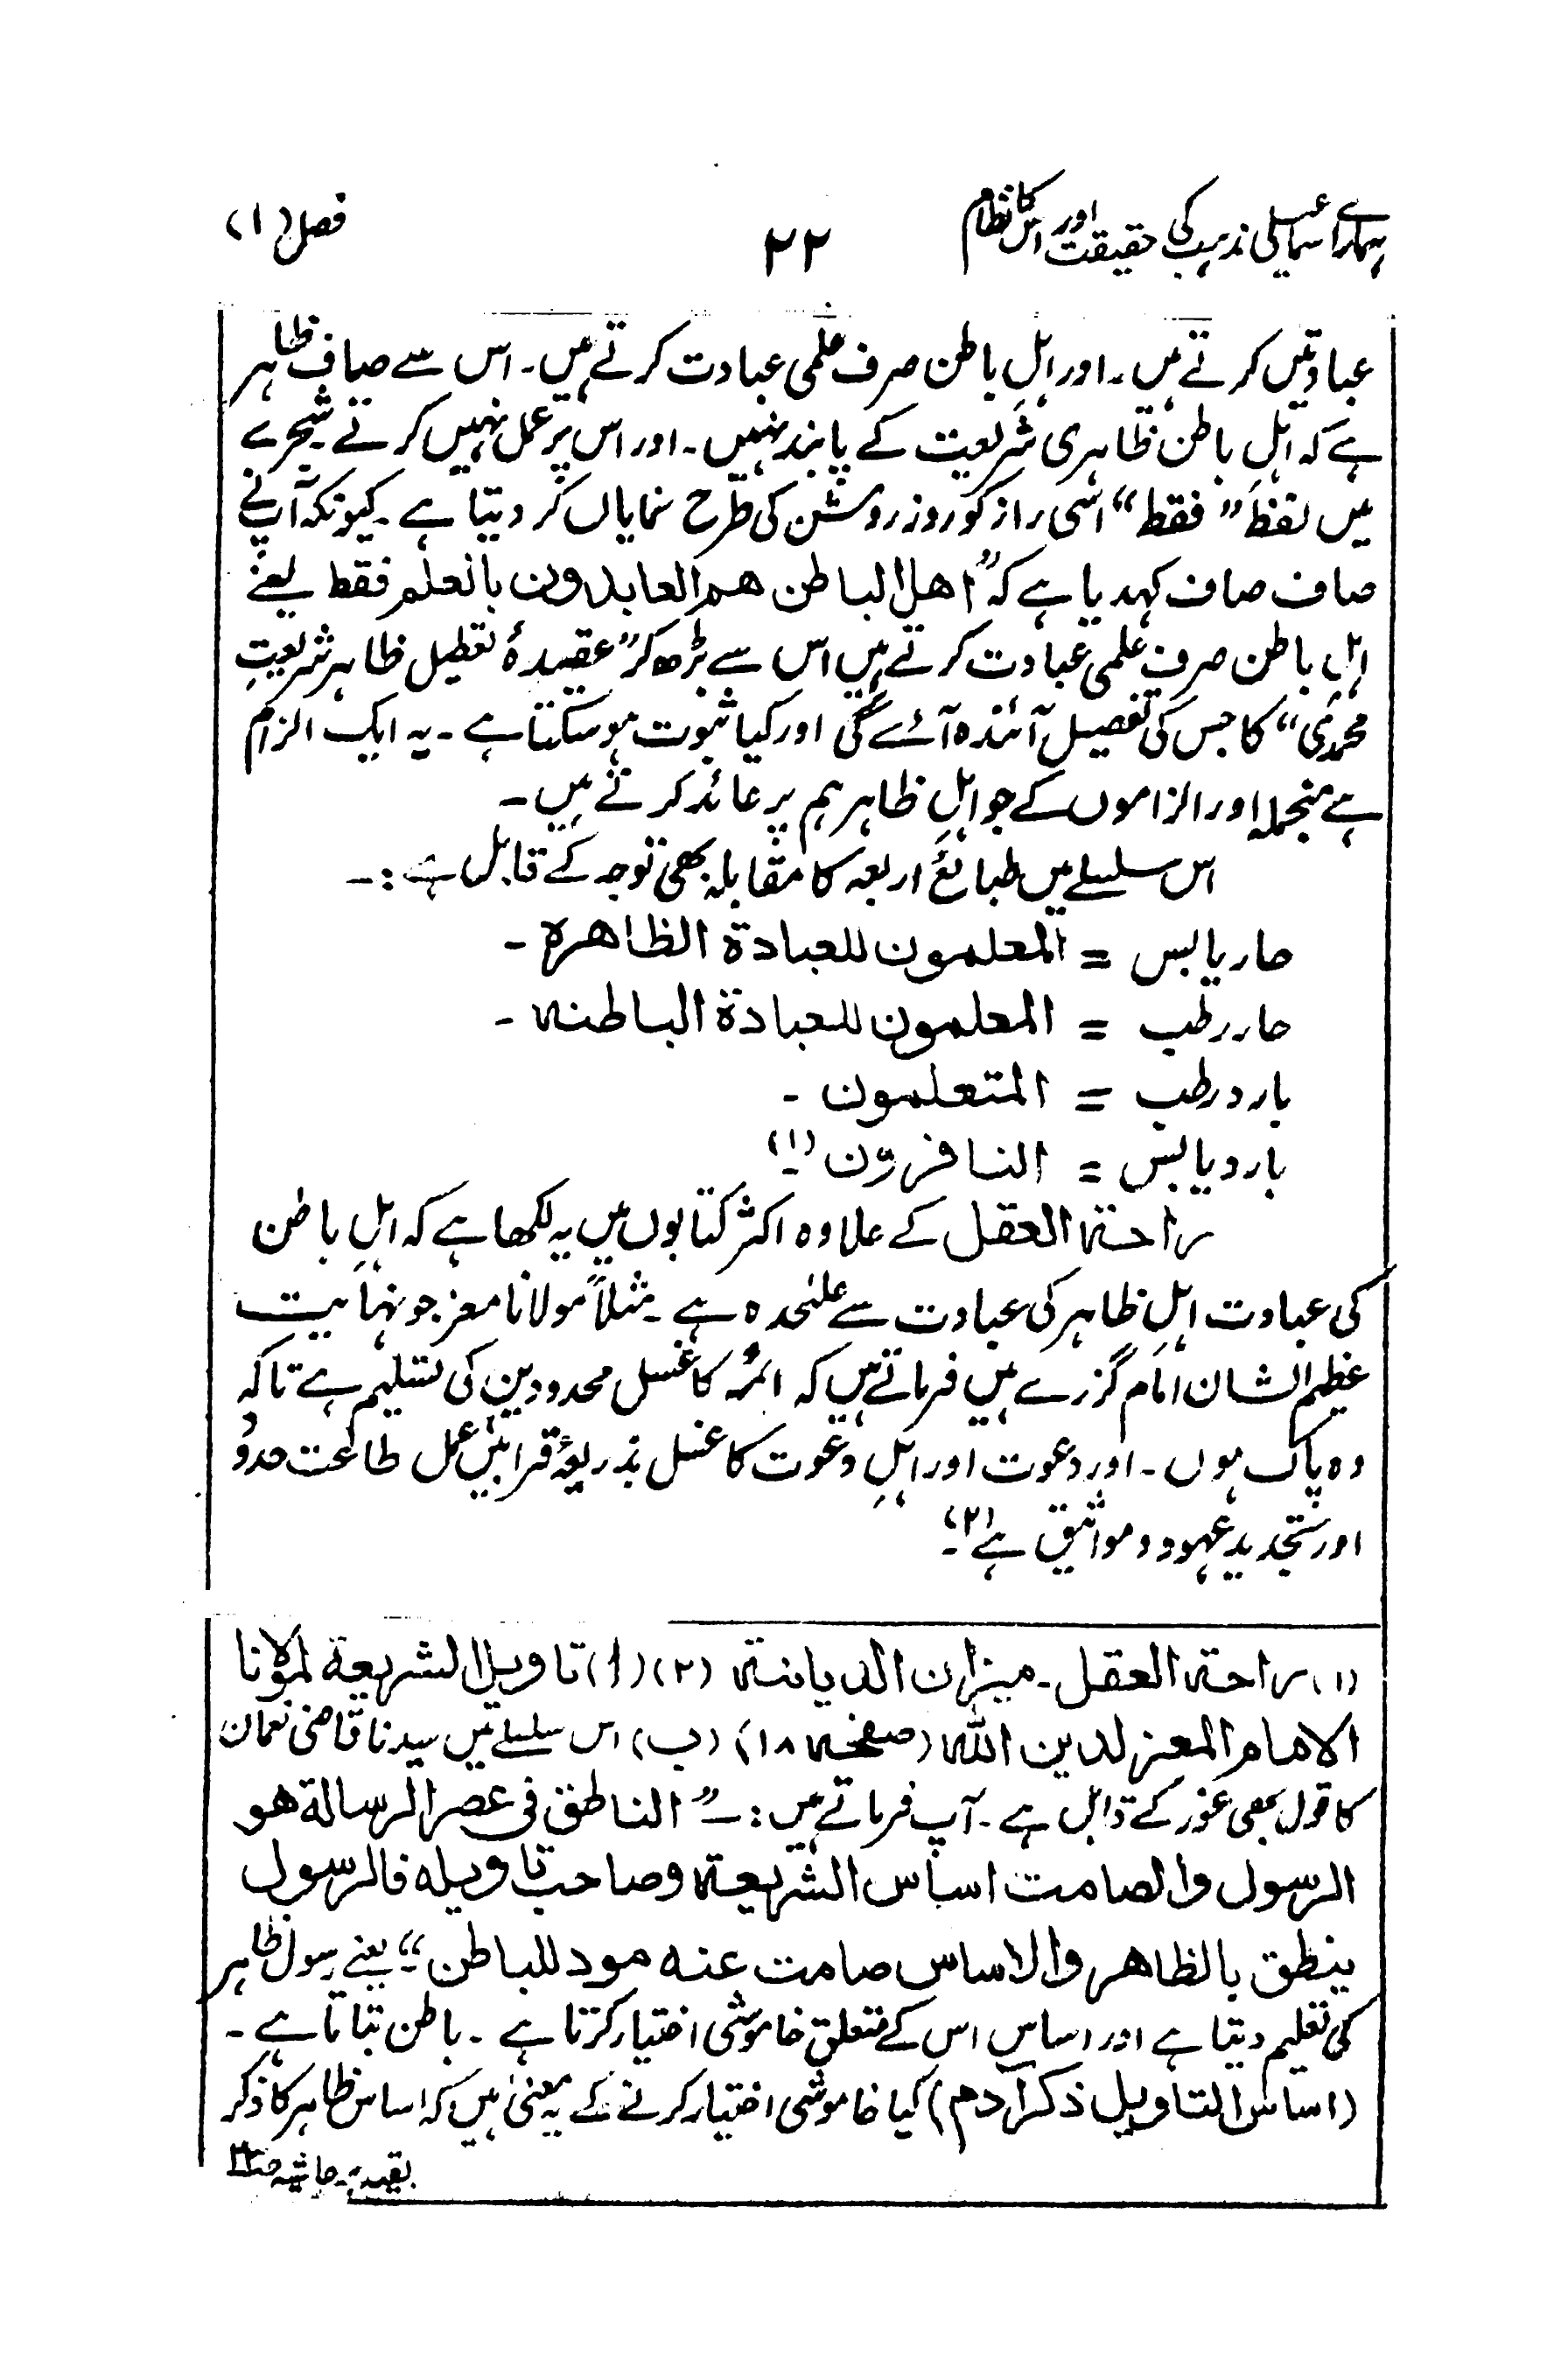 ہمارے اسماعیلی مذہب کی حقیقت اور اس کا نظام
۲۲
فصل (۱)
عبادتیں کرتے ہیں۔ اور اہلِ باطن صرف علمی عبادت کرتے ہیں۔ اس سے صاف ظاہر
ہے کہ اہلِ باطن ظاہری شریعت کے پابند نہیں۔ اور اس پر عمل نہیں کرتے شجرے
میں لفظ ”فقط“ اسی راز کو روزِ روشن کی طرح نمایاں کر دیتا ہے۔ کیونکہ آپ نے
صاف صاف کہدیا ہے کہ ”اهل الباطن هم العابدون بالعلم فقط یعنے
اہلِ باطن صرف علمی عبادت کرتے ہیں اس سے بڑھ کر ”عقیدۂ تعطیل ظاہر شریعتِ
محمدی“ کا جس کی تفصیل آئندہ آئے گی اور کیا ثبوت ہو سکتا ہے۔ یہ ایک الزام
ہے منجملہ اور الزاموں کے جو اہلِ ظاہر ہم پر عائد کرتے ہیں۔
اس سلسلے میں طبائع اربعہ کا مقابلہ بھی توجہ کے قابل ہے:۔
حار یابس = المعلمون للعبادة الظاهرة۔
حار رطب = المعلمون للعبادة الباطنه۔
بارد رطب = المتعلمون۔
بارد یابس = النافرون (۱)۔
راحة العقل کے علاوہ اکثر کتابوں میں یہ لکھا ہے کہ اہلِ باطن
کی عبادت اہلِ ظاہر کی عبادت سے علٰحدہ ہے۔ مثلاً مولانا معز جو نہایت
عظیم الشان امام گزرے ہیں فرماتے ہیں کہ ائمہ کا غسل محدودین کی تسلیم ہے تاکہ
وہ پاک ہوں۔ اور دعوت اور اہلِ دعوت کا غسل بذریعۂ قرابین عمل طاعت حدود
اور تجدید عہود و مواثیق ہے (۲)۔
(۱) راحة العقل۔ میزان الدیانة (۲) (ا) تاویل الشریعة لمولانا
الامام المعز لدین اللہ (صفحہ ۱۸) (ب) اس سلسلے میں سیدنا قاضی نعمان
کا قول بھی غور کے قابل ہے۔ آپ فرماتے ہیں:۔ ”الناطق فی عصر الرسالة هو
الرسول والصامت اساس الشریعة وصاحب تاویله فالرسول
ینطق بالظاهر والاساس صامت عنه مود للباطن“۔ یعنے رسول ظاہر
کی تعلیم دیتا ہے اور اساس اس کے متعلق خاموشی اختیار کرتا ہے۔ باطن بتاتا ہے۔
(اساس التاویل ذکر آدم) کیا خاموشی اختیار کرنے کے یہ معنیٰ ہیں کہ اساس ظاہر کا ذکر
بقیہ بر حاشیہ